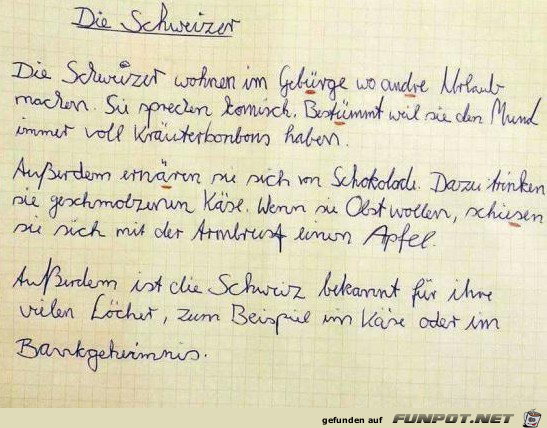 Die Schweizer
Die Schweizer wohnen im Gebürge wo andre Urlaub
machen. Sie sprechen komisch. Bestümmt weil sie den Mund
immer voll Kräuterbonbons haben.
Außerdem ernären sie sich von Schokolade. Dazu trinken
sie geschmolzenen Käse. Wenn sie Obst wollen, schiesen
sie sich mit der Armbrust einen Apfel.
Außerdem ist die Schweiz bekannt für ihre
vielen Löcher, zum Beispiel im Käse oder im
Bankgeheimnis.
gefunden auf FUNPOT.NET